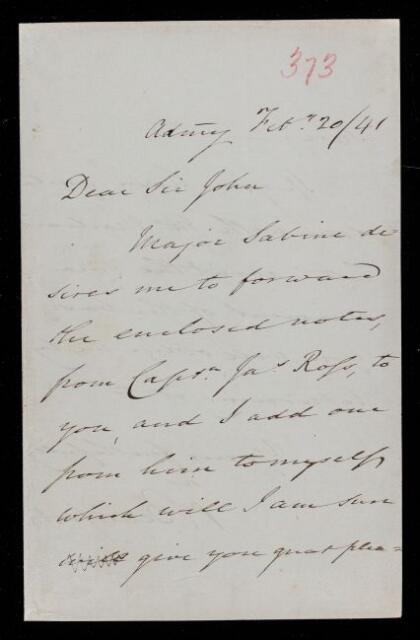 373
Admty Feby 20/41
Dear Sir John
Major Sabine de
sires me to forward
the enclosed notes,
from Captn Jas Ross, to
you, and I add one
from him to myself
which will I am sure
give you great plea=